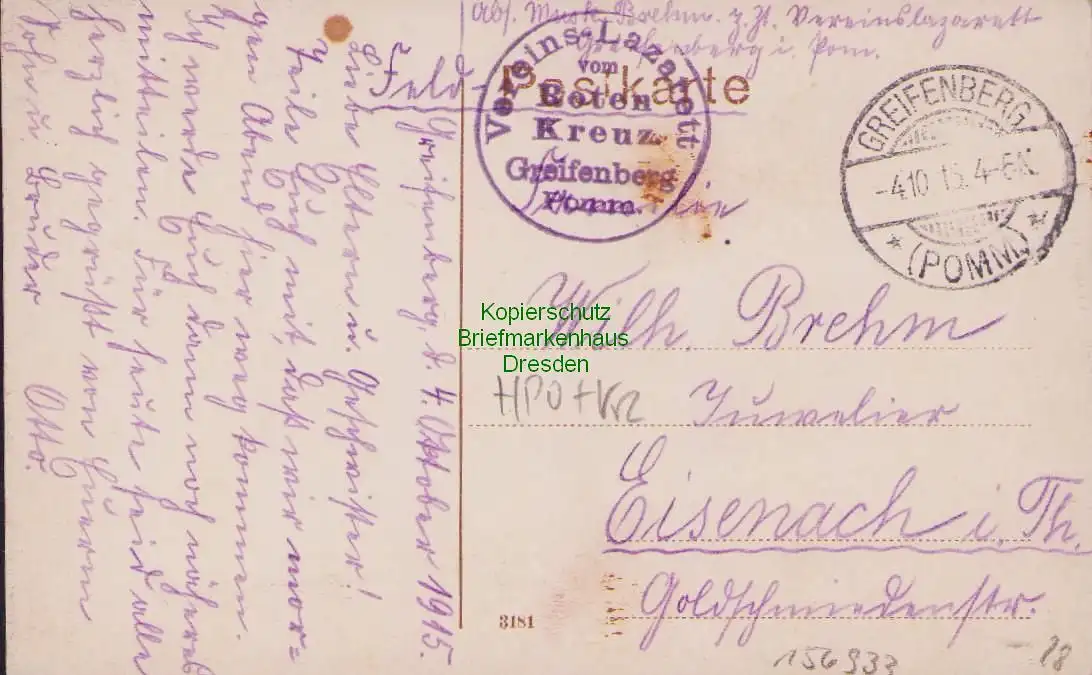 Abs. Musk. Brehm. z. Zt. Vereinslazarett
Greifenberg i. Pom.
Feld-Postkarte
Vereins-Lazarett
vom
Roten
Kreuz
Greifenberg
Pomm.
GREIFENBERG
-4.10.15. 4-5N.
* (POMM) *
Familie
Wilh. Brehm
Juwelier
Eisenach i. Th.
Goldschmiedenstr.
Kopierschutz
Briefmarkenhaus
Dresden
HPO+Krz
3181
156933
18
Greifenberg, d. 4. Oktober 1915.
Liebe Eltern u. Geschwister!
Teile Euch mit, daß wir mor=
gen Abend hier weg kommen.
Ich werde Euch dann noch näheres
mitteilen. Für heute seid alle
herzlich gegrüßt von Euerm
Sohn u. Bruder Otto.